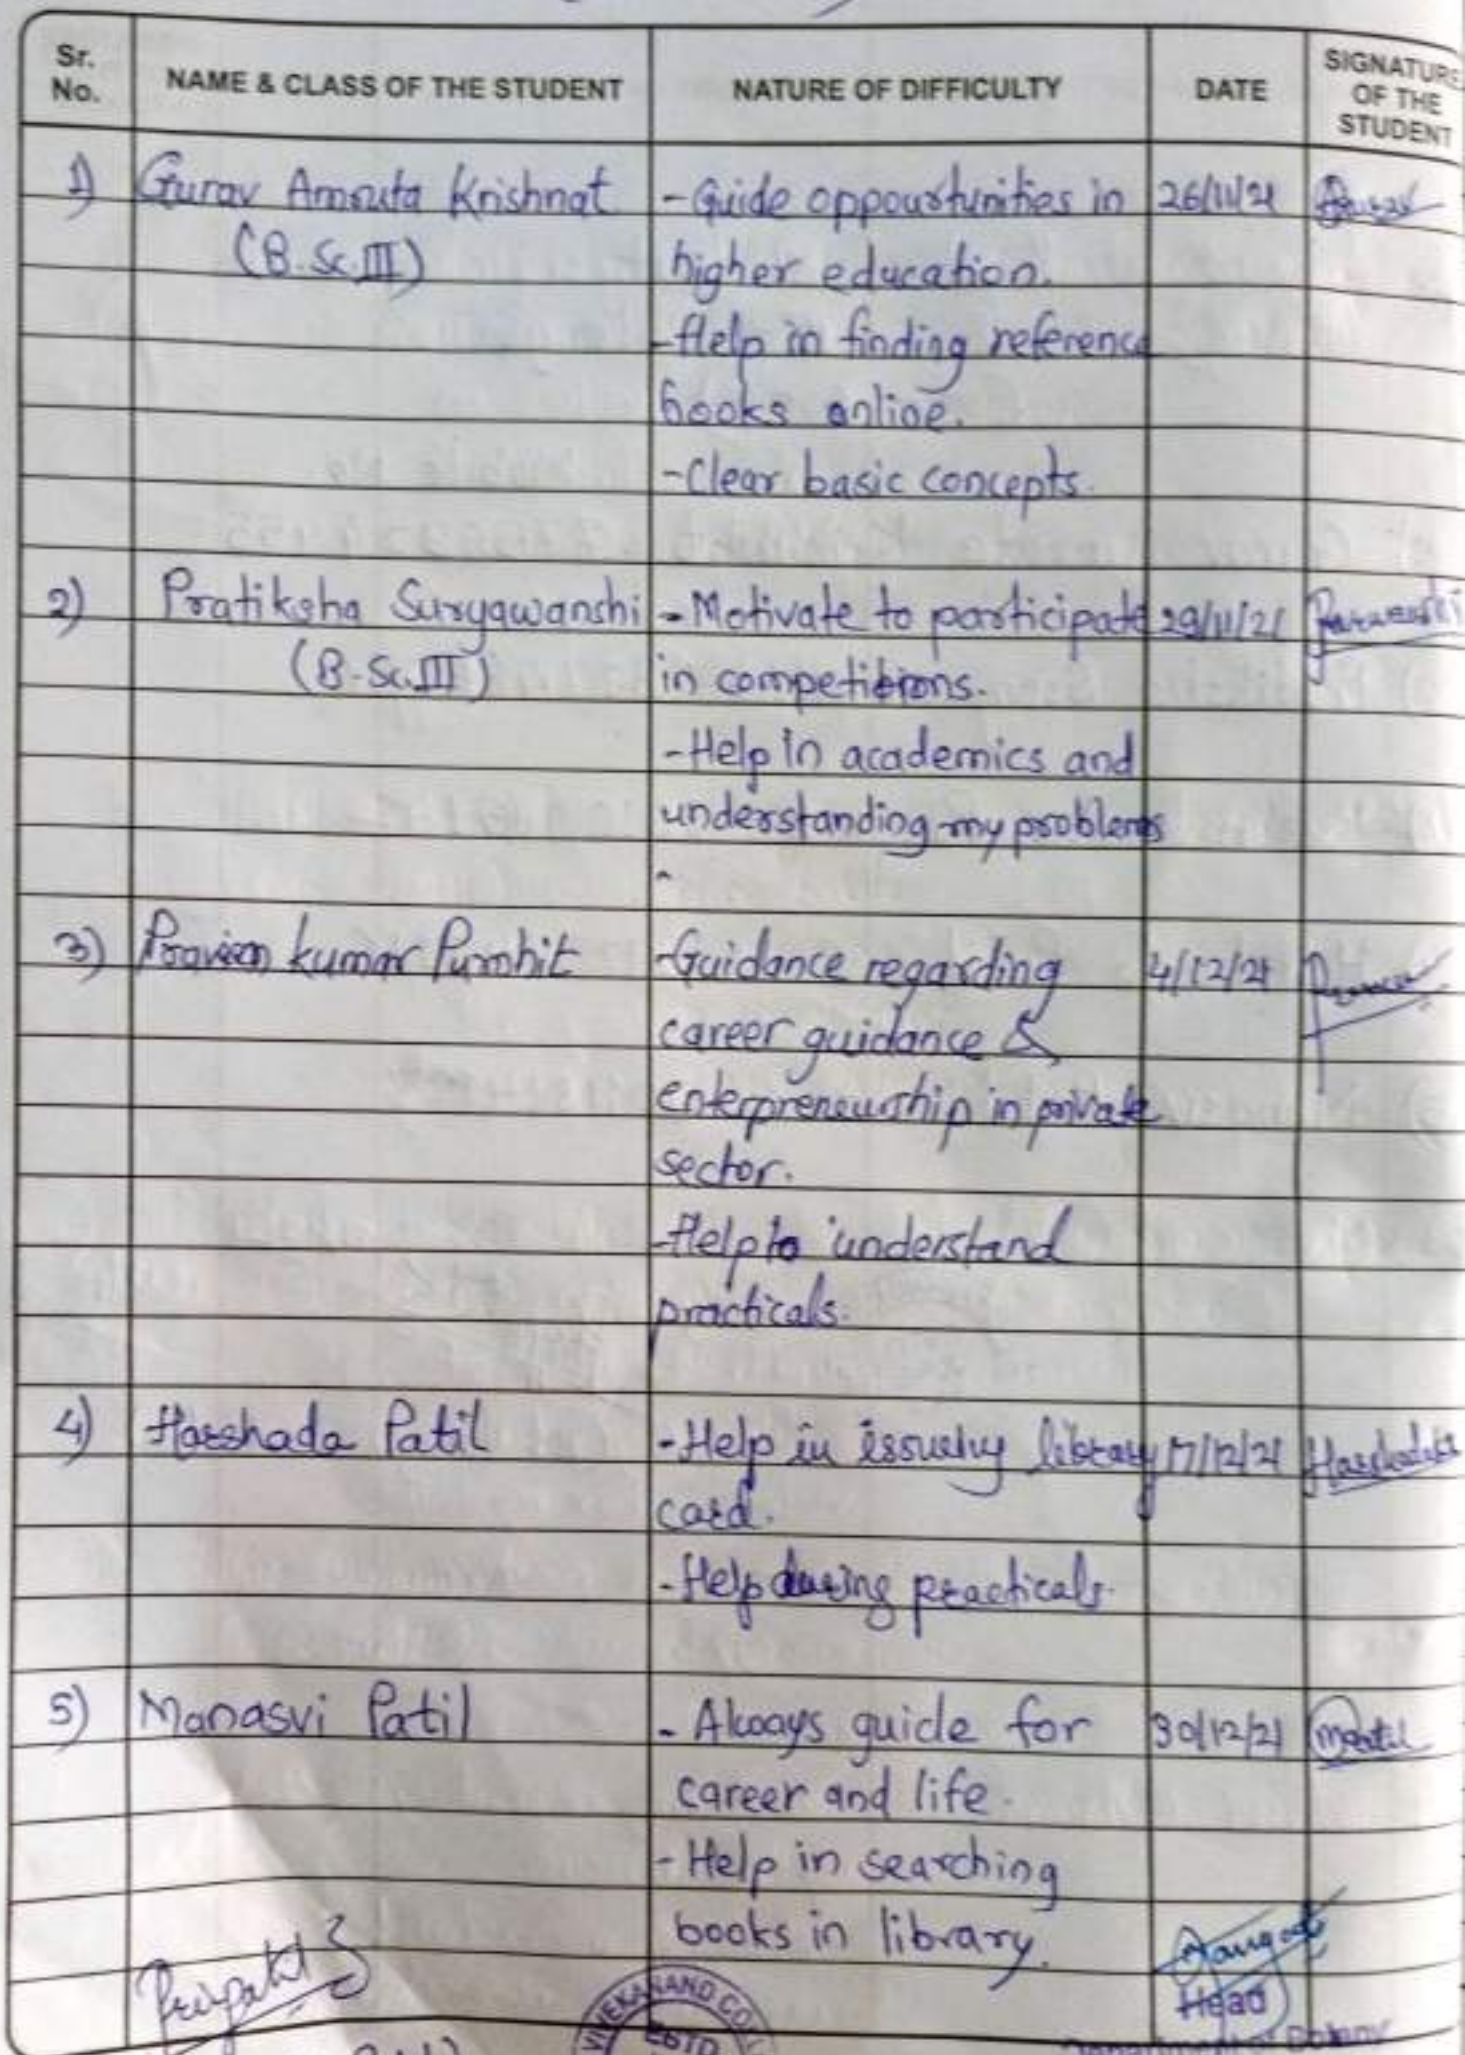 Sr. No. NAME & CLASS OF THE STUDENT NATURE OF DIFFICULTY DATE SIGNATURE OF THE STUDENT
1) Gurav Amruta Krishnat - Guide oppourtunities in 26/11/21
(B.Sc.III) higher education.
- Help in finding reference
books online.
- Clear basic concepts.
2) Pratiksha Suryawanshi - Motivate to participate 29/11/21
(B.Sc.III) in competitions.
- Help in academics and
understanding my problems
3) Praveen kumar Purohit - Guidance regarding 4/12/21
career guidance &
enterpreneurship in private
sector.
- Help to understand
practicals.
4) Harshada Patil - Help in issueing library 17/12/21
card.
- Help during practicals.
5) Manasvi Patil - Always guide for 30/12/21 MPatil
career and life.
- Help in searching
books in library.
VIVEKANAND COLL
ESTD
Head
Department of Botany